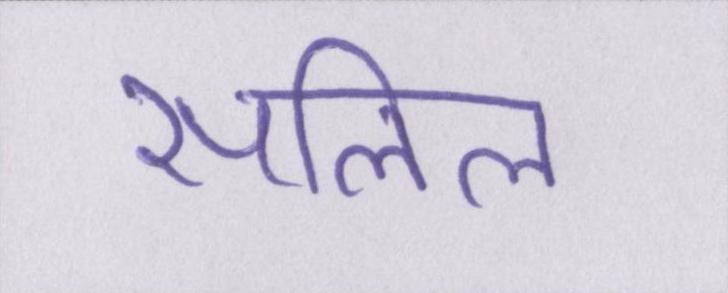 सलिल